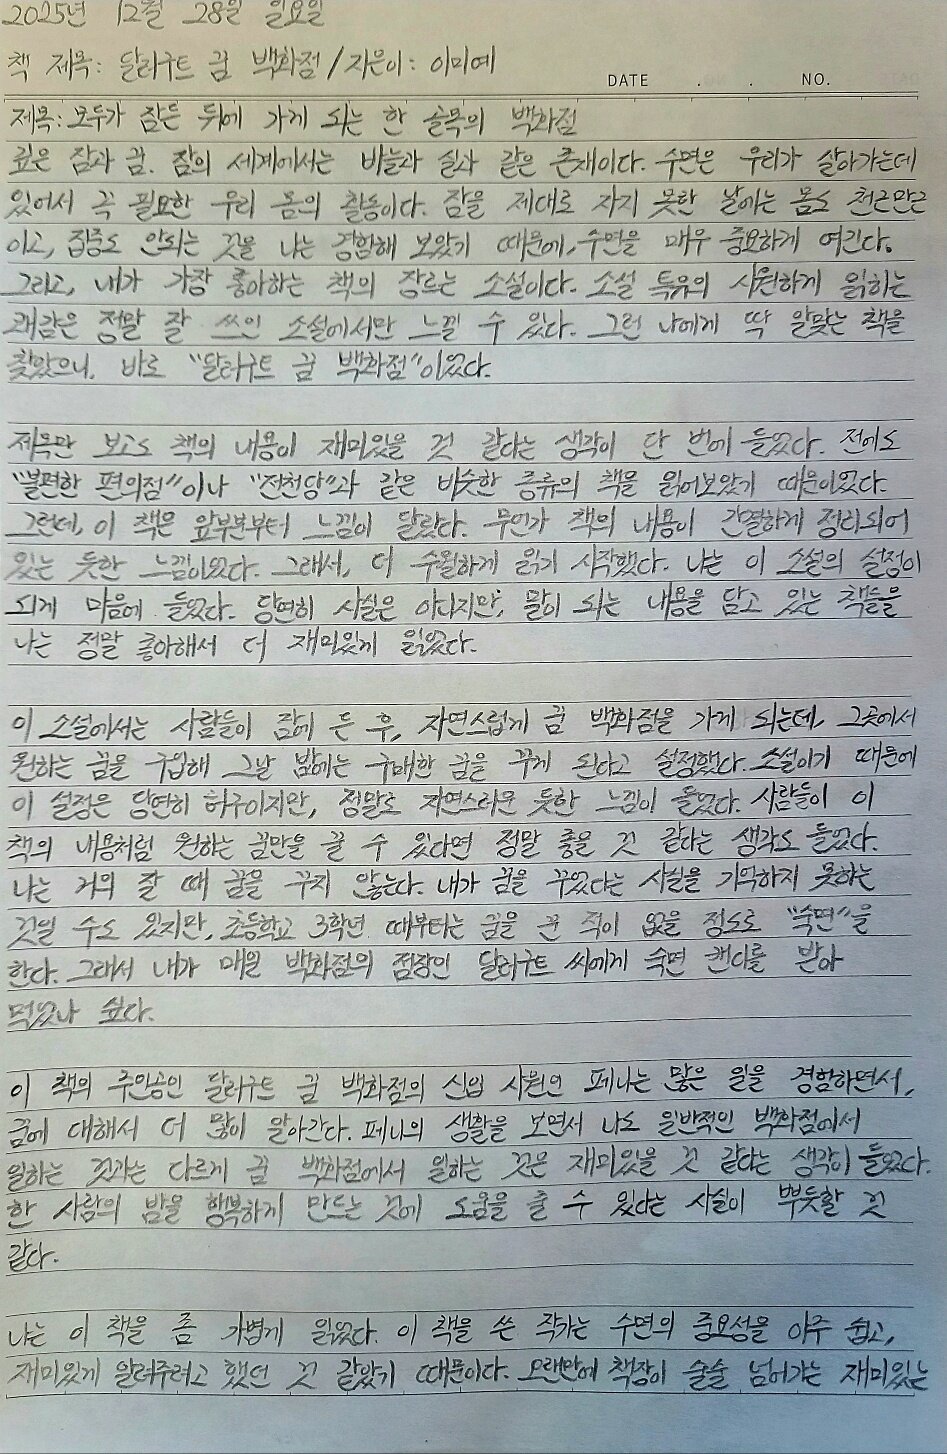 2025년 12월 28일 일요일
책 제목: 달러구트 꿈 백화점 / 지은이: 이미예
DATE . . NO.
제목: 모두가 잠든 뒤에 가게 되는 한 골목의 백화점
깊은 잠과 꿈. 잠의 세계에서는 바늘과 실과 같은 존재이다. 수면은 우리가 살아가는데
있어서 꼭 필요한 우리 몸의 활동이다. 잠을 제대로 자지 못한 날에는 몸도 천근만근
이고, 집중도 안되는 것을 나는 경험해 보았기 때문에, 수면을 매우 중요하게 여긴다.
그리고, 내가 가장 좋아하는 책의 장르는 소설이다. 소설 특유의 시원하게 읽히는
쾌감은 정말 잘 쓰인 소설에서만 느낄 수 있다. 그런 나에게 딱 알맞는 책을
찾았으니, 바로 "달러구트 꿈 백화점"이었다.
제목만 보고도 책의 내용이 재미있을 것 같다는 생각이 단 번에 들었다. 전에도
"불편한 편의점"이나 "전천당"과 같은 비슷한 종류의 책을 읽어보았기 때문이었다.
그런데, 이 책은 앞부분부터 느낌이 달랐다. 무언가 책의 내용이 간결하게 정리되어
있는 듯한 느낌이었다. 그래서, 더 수월하게 읽기 시작했다. 나는 이 소설의 설정이
되게 마음에 들었다. 당연히 사실은 아니지만, 말이 되는 내용을 담고 있는 책들을
나는 정말 좋아해서 더 재미있게 읽었다.
이 소설에서는 사람들이 잠에 든 후, 자연스럽게 꿈 백화점을 가게 되는데, 그곳에서
원하는 꿈을 구입해 그날 밤에는 구매한 꿈을 꾸게 된다고 설정했다. 소설이기 때문에
이 설정은 당연히 허구이지만, 정말로 자연스러운 듯한 느낌이 들었다. 사람들이 이
책의 내용처럼 원하는 꿈만을 꿀 수 있다면 정말 좋을 것 같다는 생각도 들었다.
나는 거의 잘 때 꿈을 꾸지 않는다. 내가 꿈을 꾸었다는 사실을 기억하지 못하는
것일 수도 있지만, 초등학교 3학년 때부터는 꿈을 꾼 적이 없을 정도로 "숙면"을
한다. 그래서 내가 매일 백화점의 점장인 달러구트 씨에게 숙면 캔디를 받아
먹었나 싶다.
이 책의 주인공인 달러구트 꿈 백화점의 신입 사원인 페니는 많은 일을 경험하면서,
꿈에 대해서 더 많이 알아간다. 페니의 생활을 보면서 나도 일반적인 백화점에서
일하는 것과는 다르게 꿈 백화점에서 일하는 것은 재미있을 것 같다는 생각이 들었다.
한 사람의 밤을 행복하게 만드는 것에 도움을 줄 수 있다는 사실이 뿌듯할 것
같다.
나는 이 책을 좀 가볍게 읽었다. 이 책을 쓴 작가는 수면의 중요성을 아주 쉽고,
재미있게 알려주려고 했던 것 같았기 때문이다. 오랜만에 책장이 술술 넘어가는 재미있는